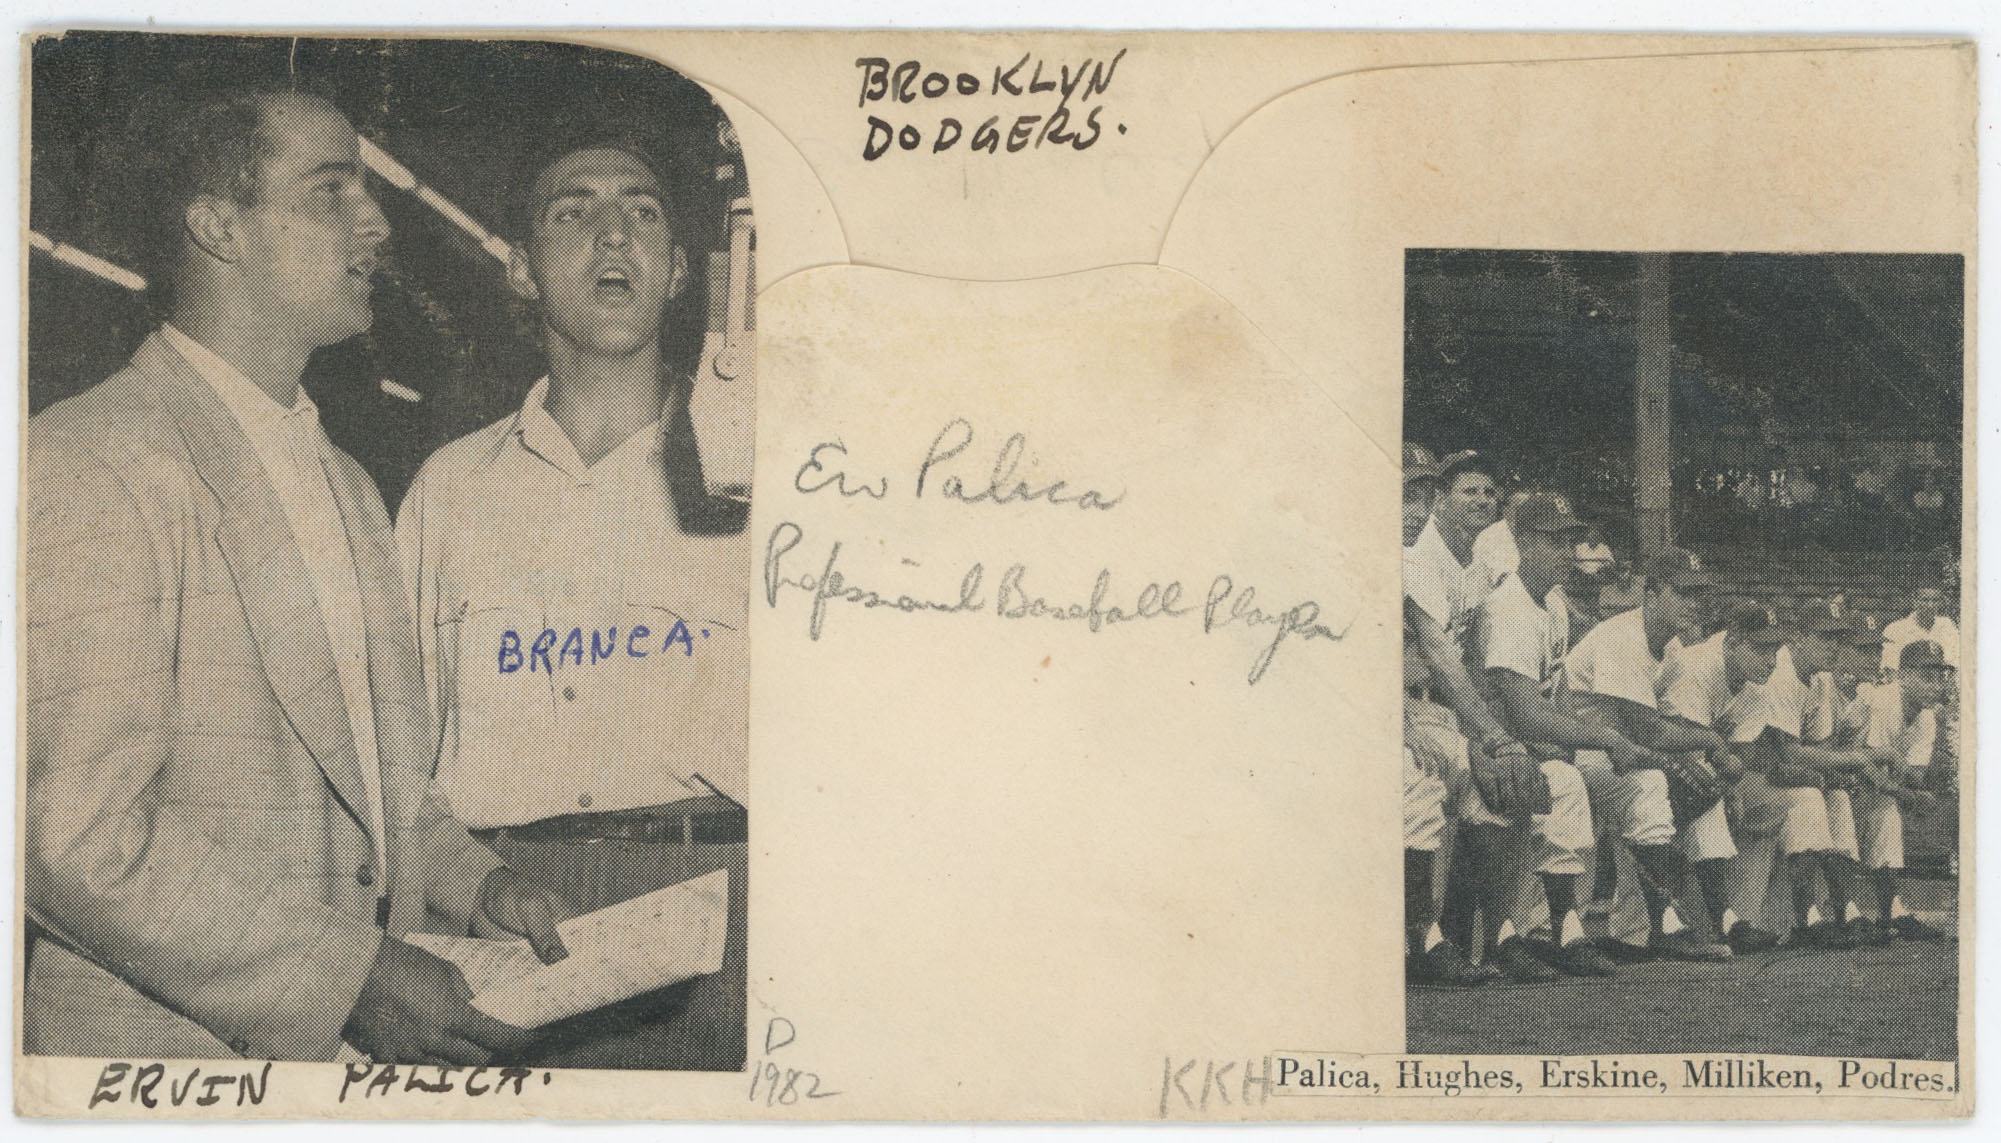 BROOKLYN
DODGERS.
Erv Palica
Professional Baseball Player
BRANCA.
ERVIN PALICA.
D
1982
KKH
Palica, Hughes, Erskine, Milliken, Podres.